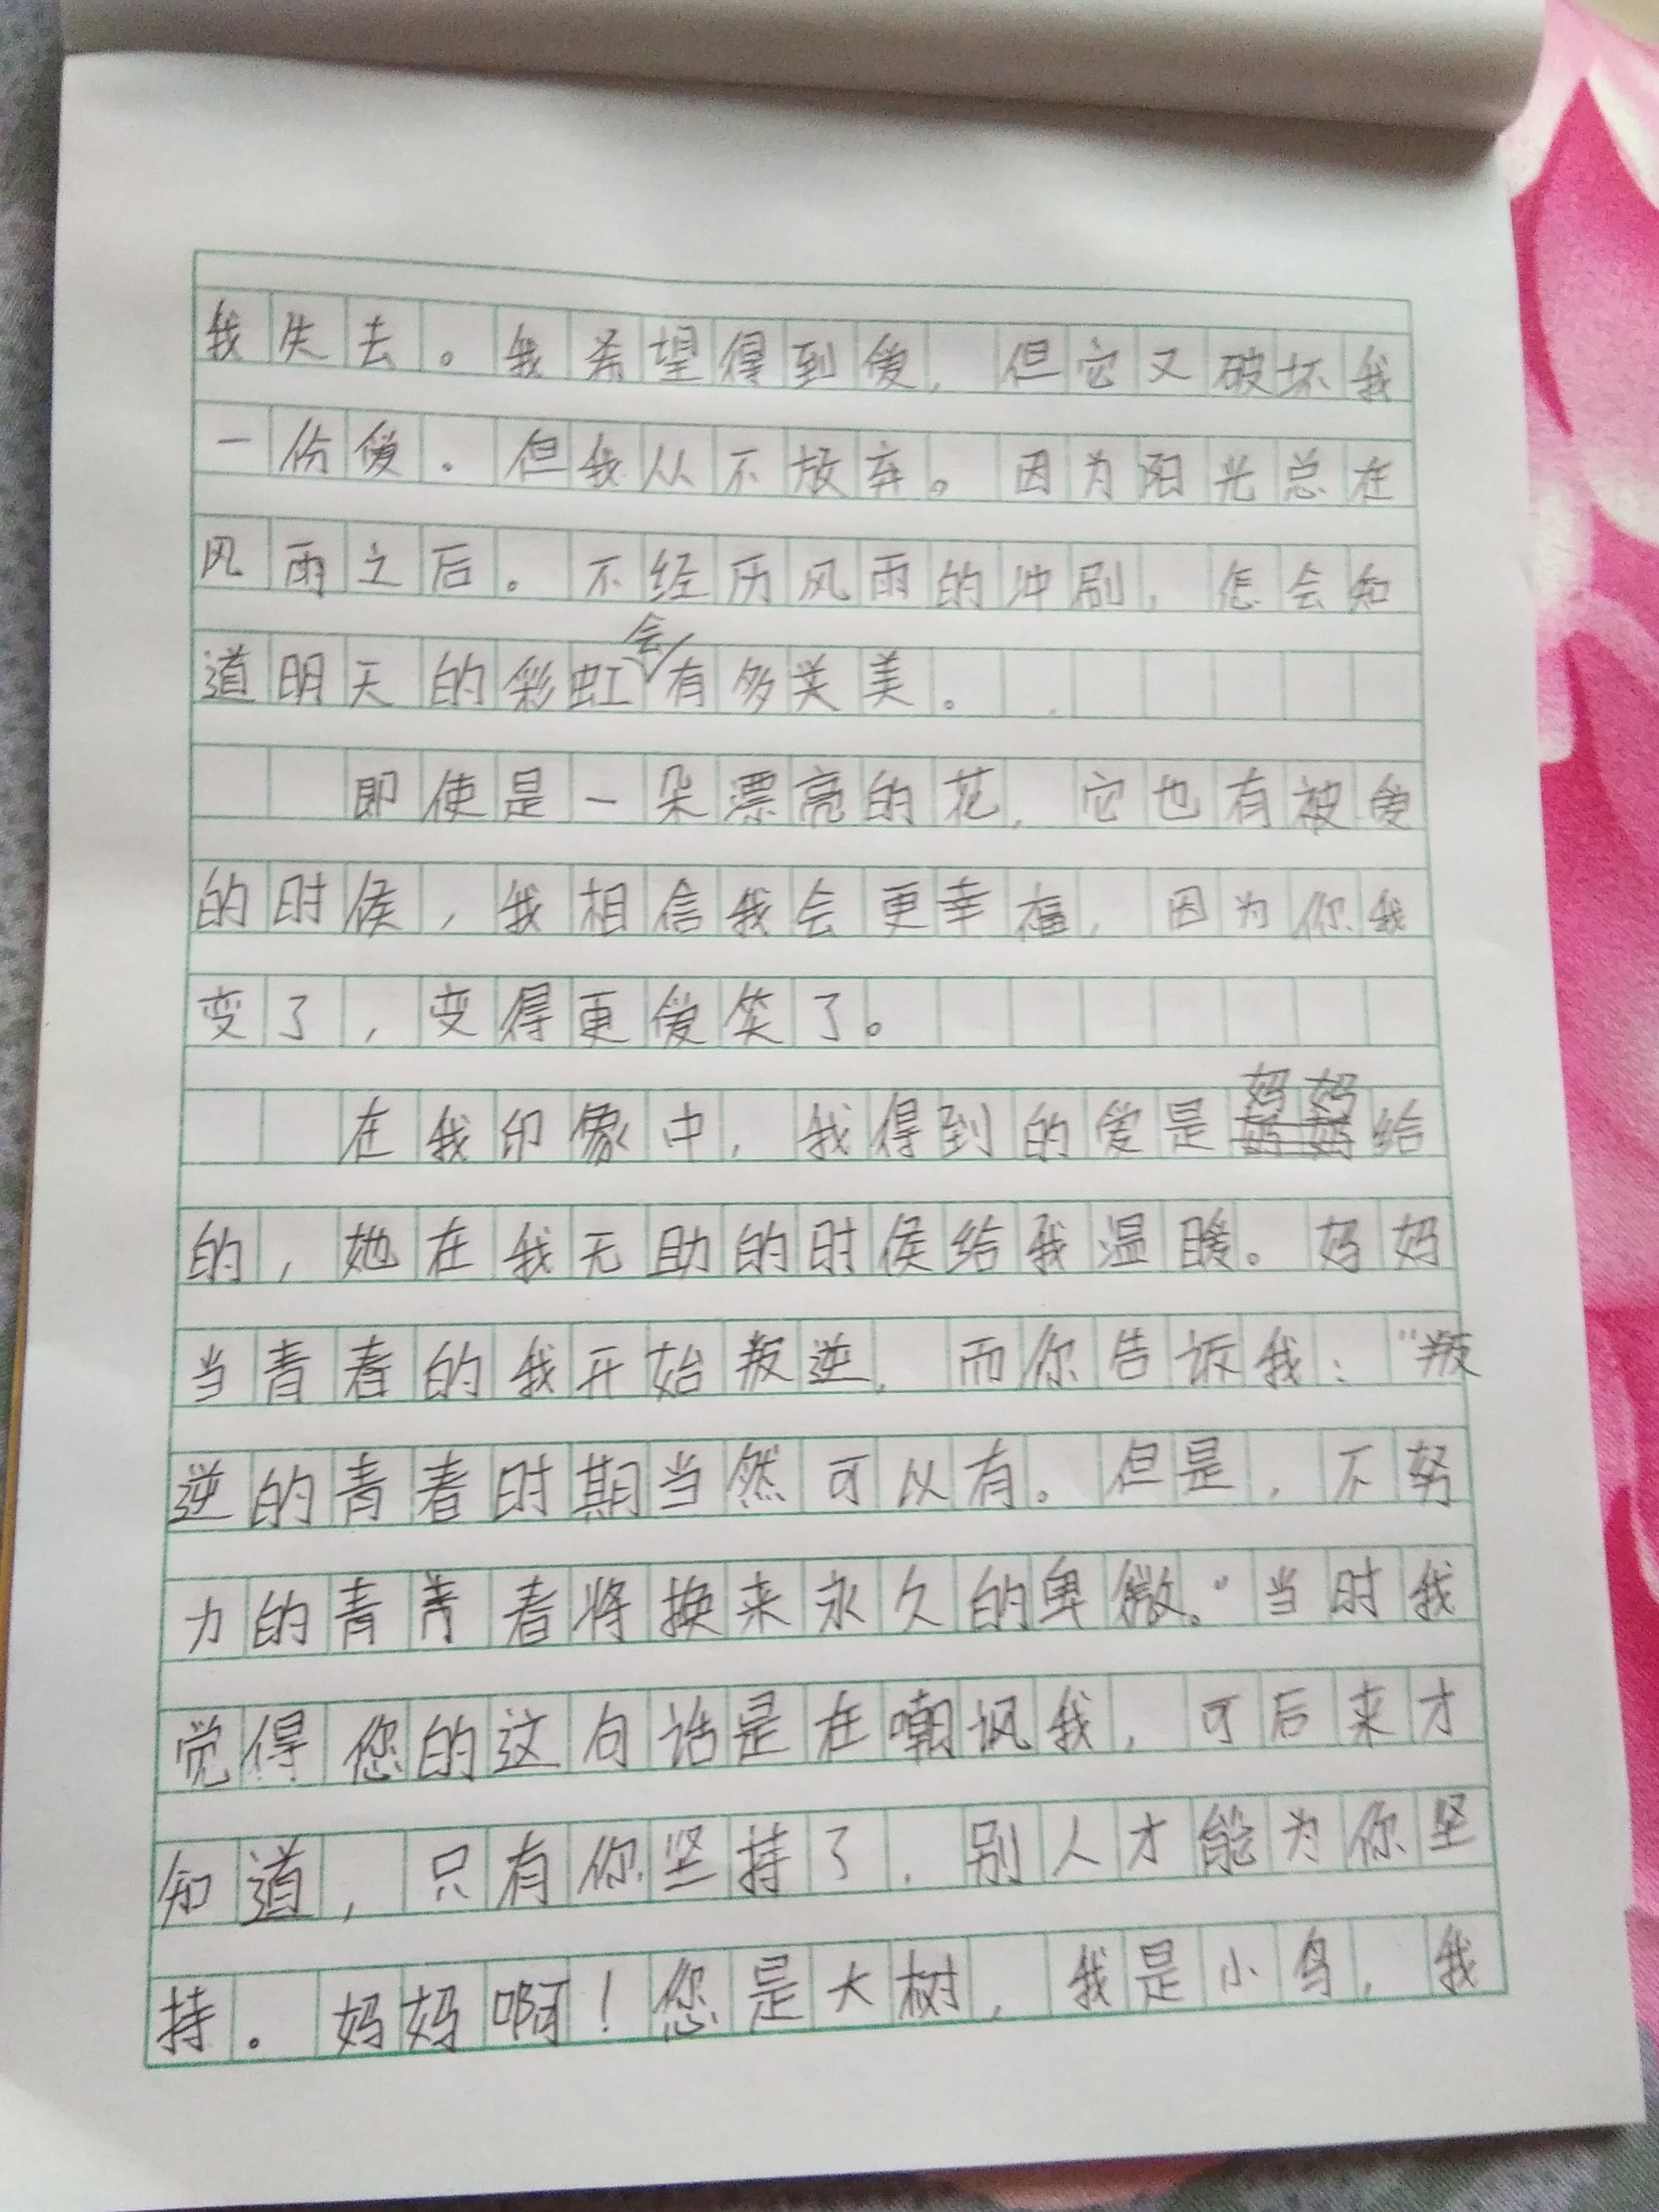 我失去。我希望得到爱，但它又破坏我
一份爱。但我从不放弃。因为阳光总在
风雨之后。不经历风雨的冲刷，怎会知
道明天的彩虹会有多美。
即使是一朵漂亮的花，它也有被爱
的时候，我相信我会更幸福，因为你我
变了，变得更爱笑了。
在我印象中，我得到的爱是妈妈给
的，她在我无助的时侯给我温暖。妈妈
当青春的我开始叛逆，而你告诉我：“叛
逆的青春时期当然可以有。但是，不努
力的青春将换来永久的卑微。”当时我
觉得您的这句话是在嘲讽我，可后来才
知道，只有你坚持了，别人才能为你坚
持。妈妈啊！您是大树，我是小鸟，我